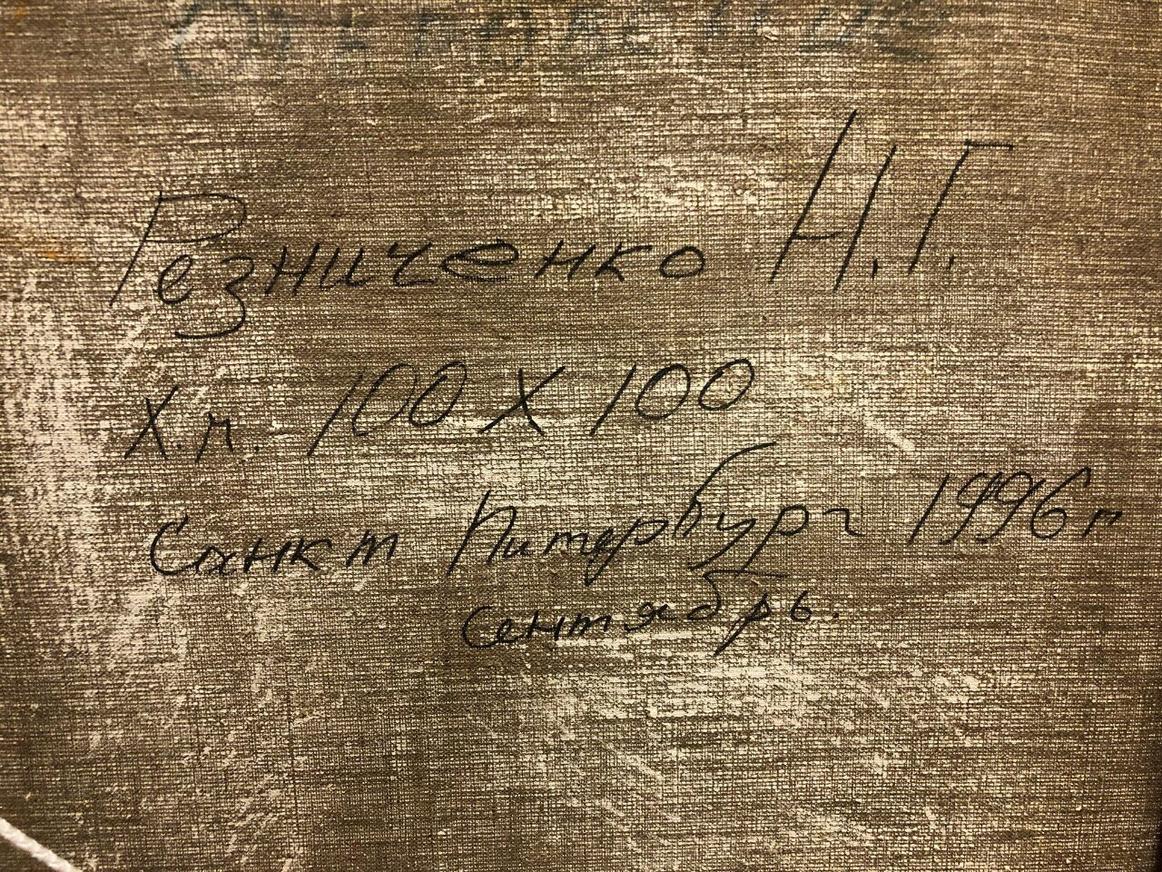 Резниченко Н.Г.
Х.м. 100 X 100
Санкт Питербург 1996 г
сентябрь.